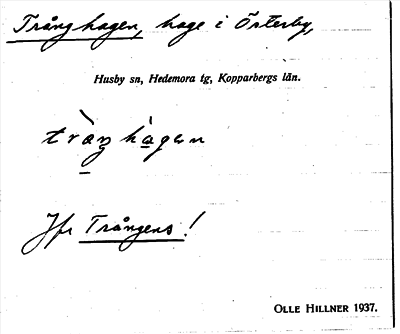 Trånghagen, hage i Österby,
Husby sn, Hedemora tg, Kopparbergs län.
tràŋ hagen
Jfr Trångens!
OLLE HILLNER 1937.